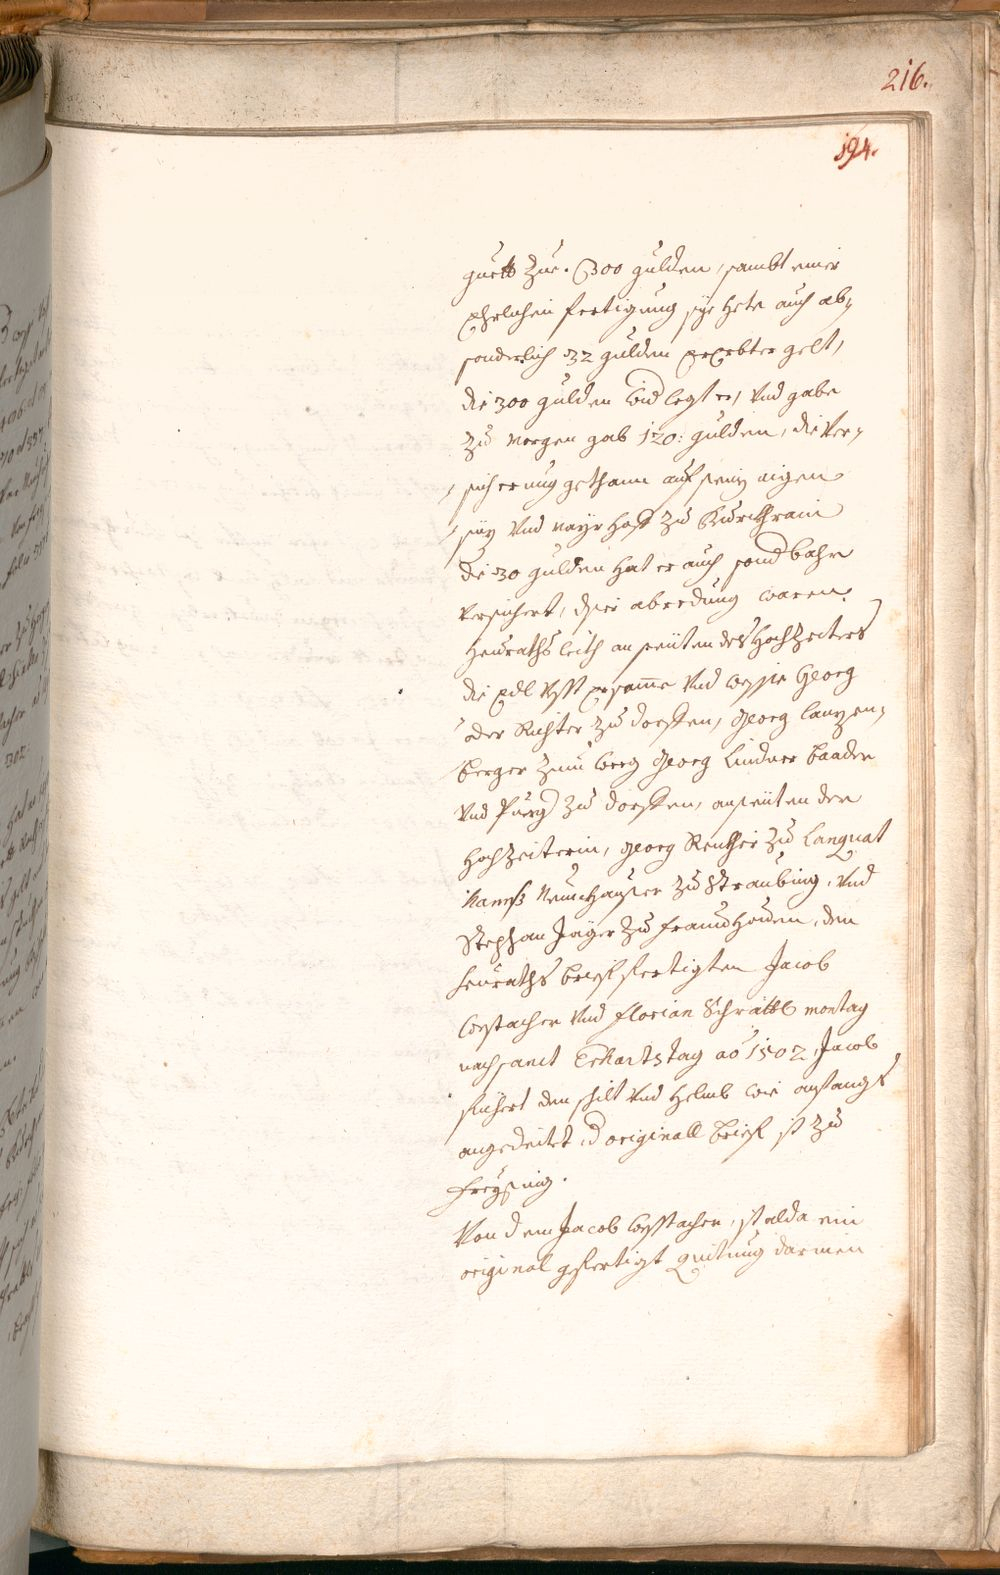 216.
194.
guett Zue. 300 gulden, sambt einer
Ehrlichen fertigung sÿe hete auch ab,
sonderlich 32 gulden ererbter gelt,
die 300 gulden widlegt er, Vnd gabe
Zu morgen gab 120: gulden, die Ver,
sicherung gethann auf seinÿ aigen
siz Vnd maÿr hoff Zu
die 30 gulden hat er auch sondbahr
Versichert, dser abredung waren
Heuraths leith an seiten des Hochzeiters
die Edl Vesst ersame Vnd weise Georg
oder Richter Zu dorffen, Georg lanzen,
berger zum berg Georg Lindner baader
Vnd Purg Zu dorffen, an seiten der
Hochzeiterin, Georg Reuther Zu Langquat
Hannß Neuchauser Zu Straubing, Vnd
Stephan Jäger Zu fraunhouen, den
heuraths brieff fertigten Jacob
Westacher Vnd florian Schrättl montag
nach sanct Erhardtstag ao 1502 Jacob
fiehert den schilt Vnd Helmb wie anfangs
angedeitet, d originall brieff ist Zu
freÿsing.
Von dem Jacob Westacher, ist alda ein
original gefertigt Quittung darinnen